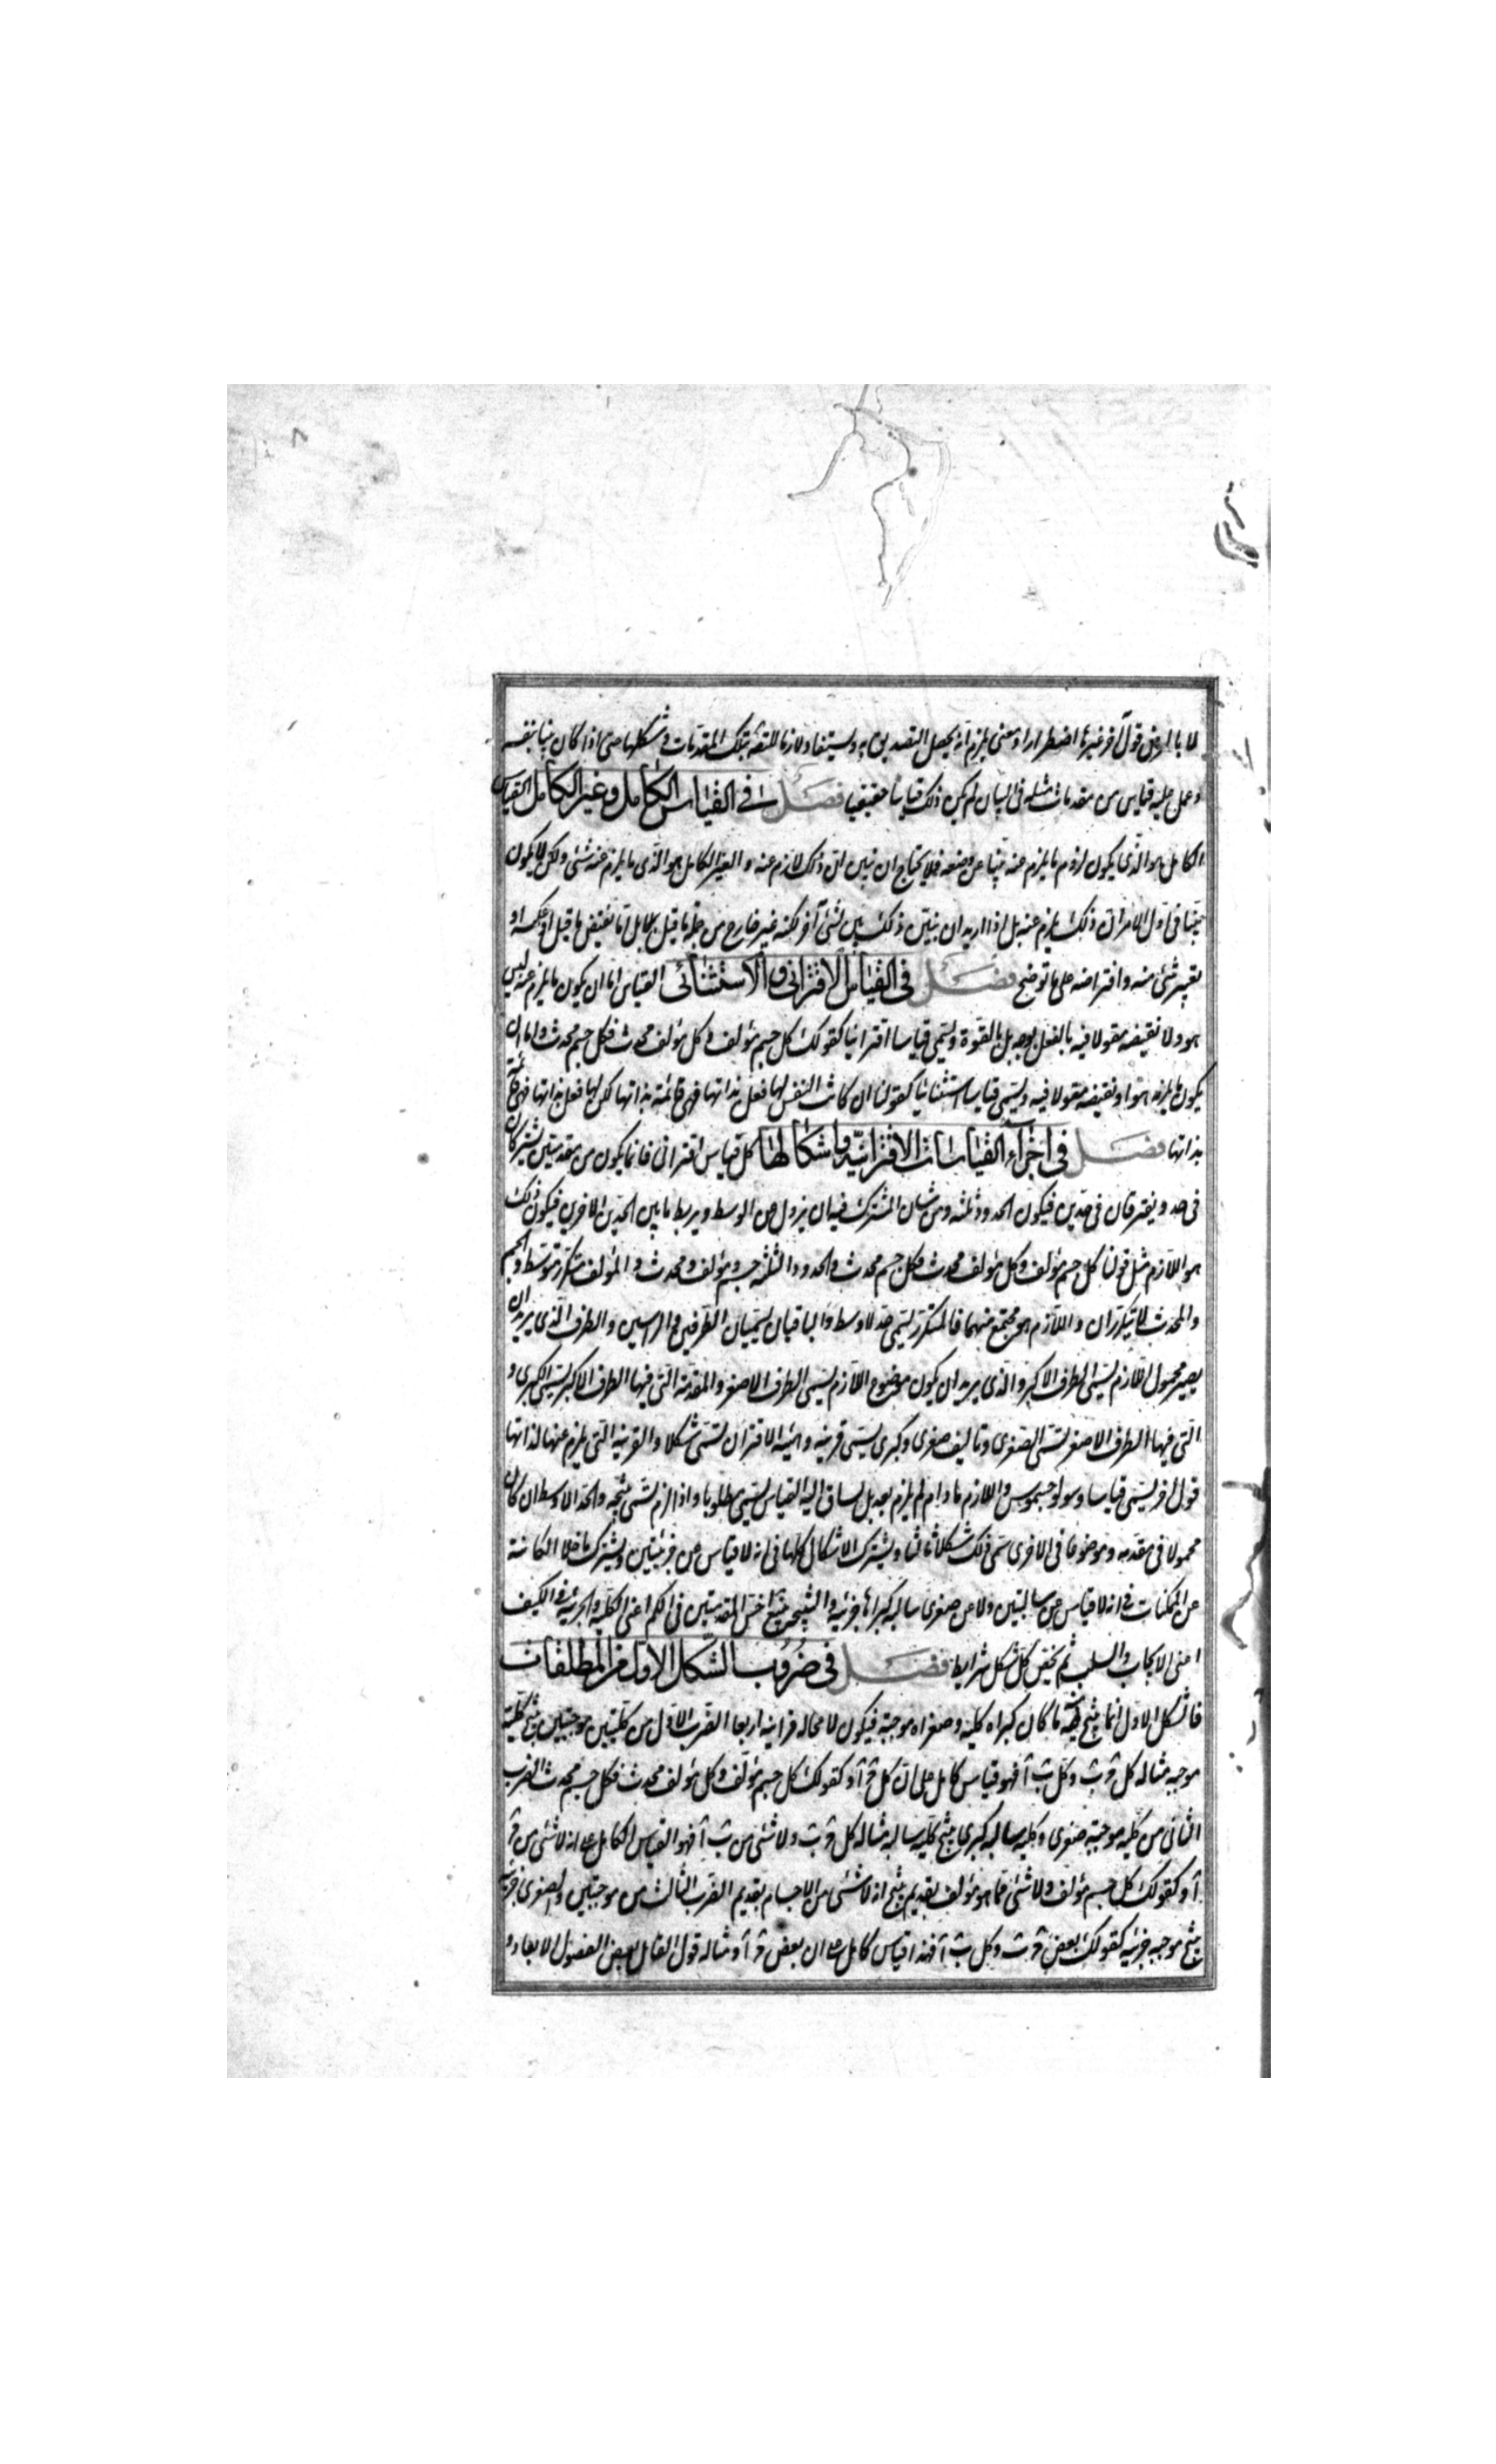 لا بالعرض قول آخر غيرها اضطرارا ومعنى يلزم انه يحصل التصديق به ويستفاد لازما للتصديق بتلك المقدمات وشكلها حتى اذا كان بينا بنفسه
وعمل عليه قياس من مقدمات مثله فى البيان لم يكن ذلك قياسا حقيقيا فصل فى القياس الكامل وغير الكامل القياس
الكامل هو الذى يكون لزوم ما يلزم عنه بينا عن وضعه فلا يحتاج ان نبين ان ذلك لازم عنه والغير الكامل هو الذى ما يلزم عنه شئ ولكن لا يكون
بينا فى اول الامر ان ذلك يلزم عنه بل اذا اريد ان نبين ذلك بين لشئ آخر لكنه غير خارج من جملة ما قيل بل اما نقيض ما قيل او عكسه او
تعيين شئ منه وافتراضه على ما توضح فصل فى القياس الاقترانى والاستثنائى القياس اما ان يكون ما يلزم عنه ليس
هو ولا نقيضه مقولا فيه بالفعل بوجه بل بالقوة ويسمى قياسا اقترانيا كقولك كل جسم مؤلف وكل مؤلف محدث فكل جسم محدث واما ان
يكون ما يلزمه هو او نقيضه مقولا فيه ويسمى قياسا استثنائيا كقولنا ان كانت النفس لها فعل بذاتها فهى قائمة بذاتها لكن لها فعل بذاتها فهى قائمة
بذاتها فصل فى اجزاء القياسات الاقترانية واشكالها كل قياس اقترانى فانما يكون من مقدمتين يشتركان
فى حد ويفترقان فى حدين فيكون الحدود ثلثه ومن شان المشترك فيه ان يزول عن الوسط ويربط ما بين الحدين الاخرين فيكون ذلك
هو اللازم مثل قولنا كل جسم مؤلف وكل مؤلف محدث فكل جسم محدث والحدود الثلثه جسم ومؤلف ومحدث والمؤلف متكرر متوسط والجسم
والمحدث لا يتكرران واللازم هو مجتمع منهما فالمتكرر يسمى حد الاوسط والباقيان يسميان الطرفين والراسين والطرف الذى يريد ان
يصير محمول اللازم يسمى الطرف الاكبر والذى يريد ان يكون موضوع اللازم يسمى الطرف الاصغر والمقدمة التى فيها الطرف الاكبر يسمى الكبرى و
التى فيها الطرف الاصغر تسمى الصغرى وتاليف صغرى وكبرى يسمى قرينه وهيئة الاقتران تسمى شكلا والقرينه التى يلزم عنها لذاتها
قول اخر يسمى قياسا وسولوجسموس واللازم ما دام لم يلزم بعد بل يساق اليه القياس يسمى مطلوبا واذا لزم تسمى نتيجه والحد الاوسط ان كان
محمولا فى مقدمه وموضوعا فى الاخرى سمى ذلك شكلا ويشترك الاشكال كلها فى انه لا قياس عن جزئيتين ويشترك ما خلا الكائنة
عن الممكنات فى انه لا قياس عن سالبتين ولا عن صغرى سالبه كبراها جزئيه والنتيجه تتبع اخس المقدمتين فى الكم اعنى الكليه والجزئيه وفى الكيف
اعنى الايجاب والسلب ثم يخص كل شكل شرايط فصل فى ضروب الشكل الاول من المطلقات
فالشكل الاول انما ينتج منه ما كان كبراه كليه وصغراه موجبة فيكون لا محاله قراينه اربعا الضرب الاول من كليتين موجبتين ينتج كلية
موجبه مثاله كل ج ب وكل ب آ فهو قياس كامل على ان كل ج آ وكقولك كل جسم مؤلف وكل مؤلف محدث فكل جسم محدث الضرب
الثانى من كليه موجبه صغرى وكليه سالبه كبرى ينتج كليه سالبه مثاله كل ج ب ولا شئ من ب آ فهو القياس الكامل على انه لا شئ من ج
آ وكقولك كل جسم مؤلف ولا شئ مما هو مؤلف بقديم ينتج انه لا شئ من الاجسام بقديم الضرب الثالث من موجبتين والصغرى جزئية
ينتج موجبه جزئيه كقولك بعض ج ب وكل ب آ فهذا قياس كامل على ان بعض ج آ ومثاله قول القائل بعض الفصول الابعاد و